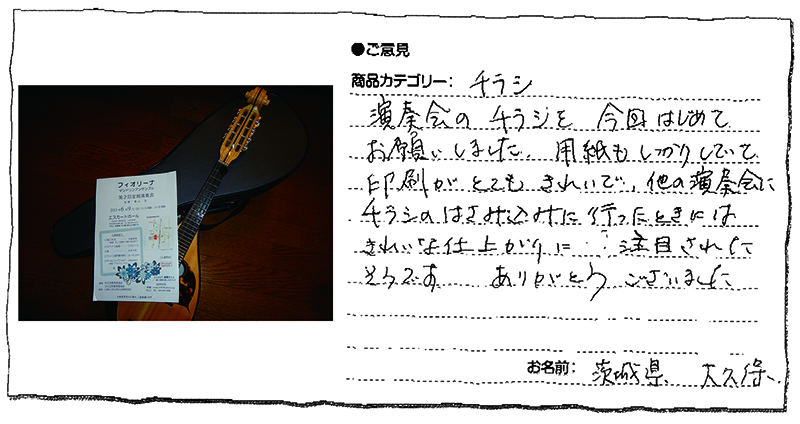 ●ご意見
商品カテゴリー: チラシ
演奏会の チラシを 今回 はじめて
お願いしました。用紙も しっかりしていて
印刷が とても きれいで、他の演奏会に
チラシの はさみ込みに 行ったときには
きれいな仕上がりに 注目された
そうです ありがとう ございました
お名前: 茨城県、大久保
フィオリーナ
マンドリンアンサンブル
第2回定期演奏会
エスカードホール